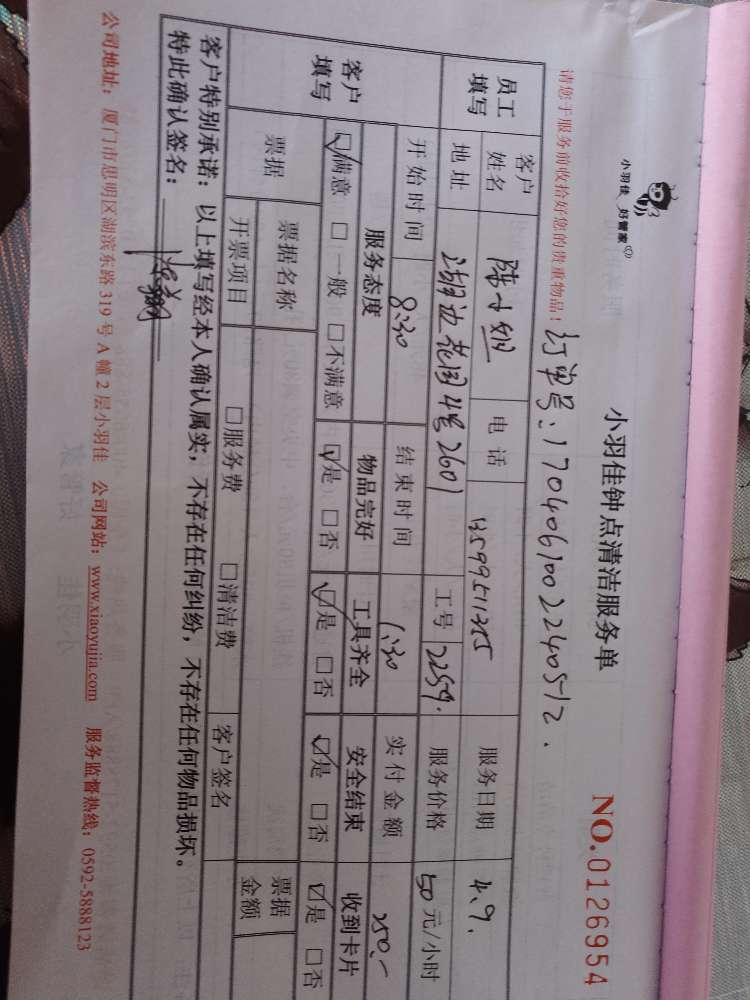 小羽佳 好管家
小羽佳钟点清洁服务单
NO.0126954
请您于服务前收拾好您的贵重物品！
订单号：170406100224 0512.
员工填写 客户姓名 陈小姐 电话 服务日期 4.9.
地址 湖边花园4号2601 工号 2259. 服务价格 50 元/小时
客户填写 开始时间 8:30 结束时间 1:30 实付金额 250.-
服务态度 物品完好 工具齐全 安全结束 收到卡片
☑满意 □一般 □不满意 ☑是 □否 ☑是 □否 ☑是 □否 ☑是 □否
票据 票据名称 票据金额
开票项目 □服务费 □清洁费 客户签名
客户特别承诺：以上填写经本人确认属实，不存在任何纠纷，不存在任何物品损坏。
特此确认签名：
公司地址：厦门市思明区湖滨东路 319 号 A 幢 2 层小羽佳 公司网站：www.xiaoyujia.com 服务监督热线：0592-5888123